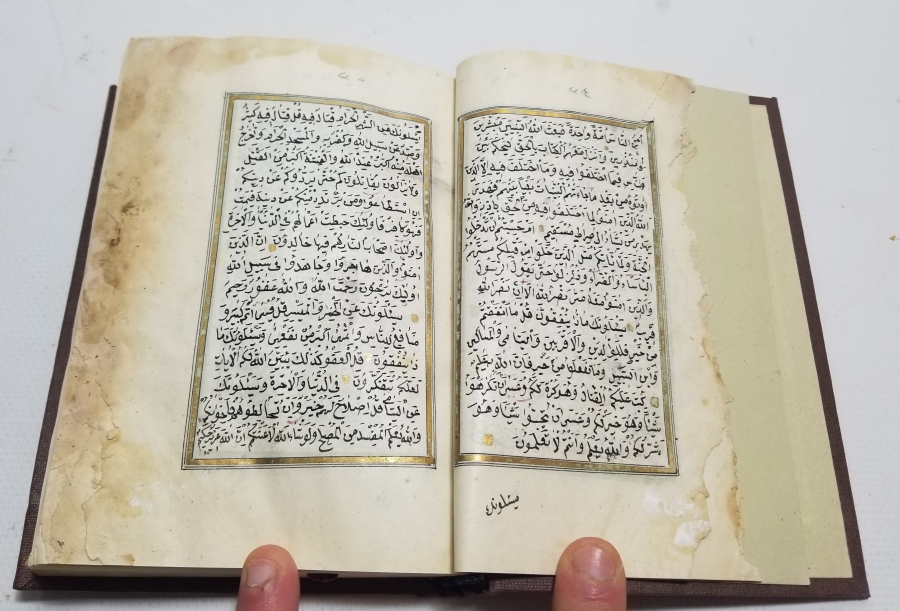 الناس امة واحدة فبعث الله النبيين مبشرين
ومنذرين وانزل معهم الكتاب بالحق ليحكم بين
الناس فيما اختلفوا فيه وما اختلف فيه الا الذين
اوتوه من بعد ما جاءتهم البينات بغيا بينهم فهدى
الله الذين امنوا لما اختلفوا فيه من الحق باذنه والله
يهدي من يشاء الى صراط مستقيم ام حسبتم ان تدخلوا
الجنة ولما ياتكم مثل الذين خلوا من قبلكم مستهم
الباساء والضراء وزلزلوا حتى يقول الرسول
والذين امنوا معه متى نصر الله الا ان نصر الله
قريب يسئلونك ماذا ينفقون قل ما انفقتم
من خير فللوالدين والاقربين واليتامى والمساكين
وابن السبيل وما تفعلوا من خير فان الله به عليم
كتب عليكم القتال وهو كره لكم وعسى ان تكرهوا
شيئا وهو خير لكم وعسى ان تحبوا شيئا وهو
شر لكم والله يعلم وانتم لا تعلمون
يسئلونك
يسئلونك عن الشهر الحرام قتال فيه قل قتال فيه كبير
وصد عن سبيل الله وكفر به والمسجد الحرام واخراج
اهله منه اكبر عند الله والفتنة اكبر من القتل
ولا يزالون يقاتلونكم حتى يردوكم عن دينكم
ان استطاعوا ومن يرتدد منكم عن دينه فيمت
وهو كافر فاولئك حبطت اعمالهم في الدنيا والاخرة
واولئك اصحاب النار هم فيها خالدون ان الذين
امنوا والذين هاجروا وجاهدوا في سبيل الله
اولئك يرجون رحمت الله والله غفور رحيم
يسئلونك عن الخمر والميسر قل فيهما اثم كبير و
منافع للناس واثمهما اكبر من نفعهما ويسئلونك ما
ذا ينفقون قل العفو كذلك يبين الله لكم الايات
لعلكم تتفكرون في الدنيا والاخرة ويسئلونك
عن اليتامى قل اصلاح لهم خير وان تخالطوهم فاخوانكم
والله يعلم المفسد من المصلح ولو شاء الله لاعنتكم ان الله عزيز حكيم